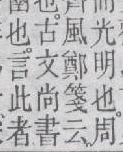 光明也周
風鄭箋云
也古文尚書
也言此者